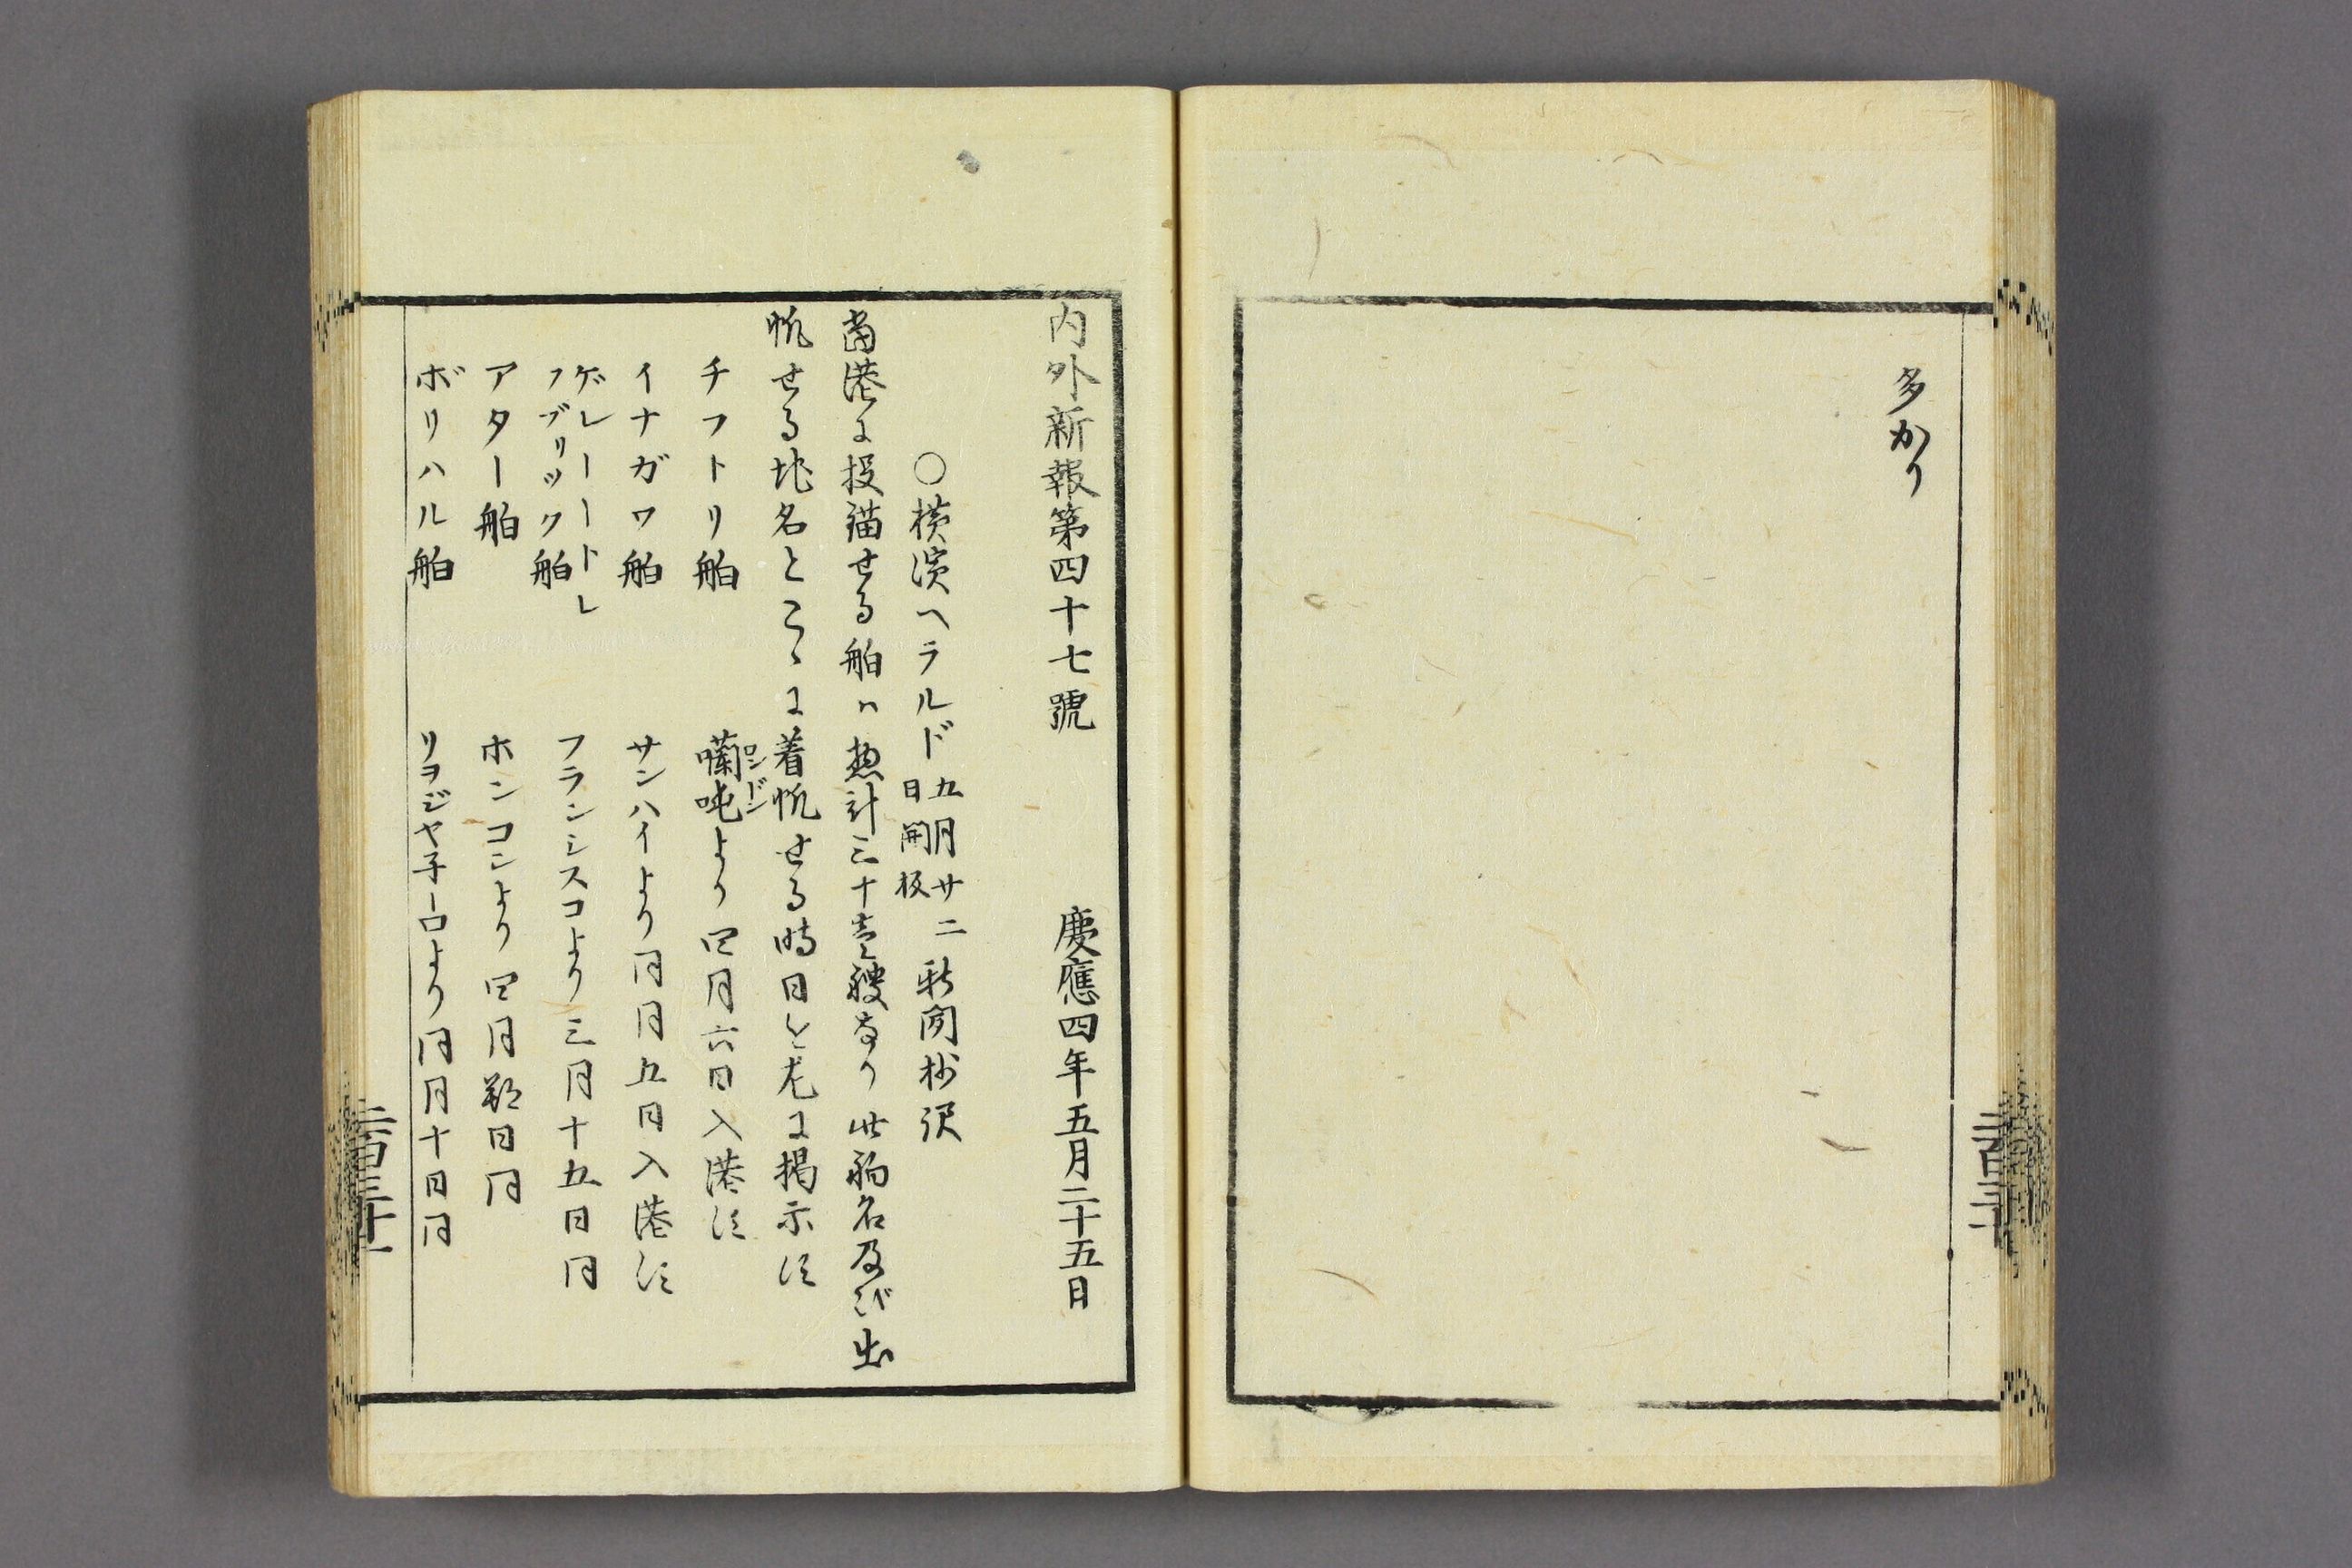 多かり
内外新報第四十七號　慶應四年五月二十五日
○横濱ヘラルド 五月廿二日開板 新聞抄訳
當港に投錨せる舶ハ惣計三十壹艘なり此舶名及び出
帆せる地名とこゝに着帆せる時日を左に掲示す
チフトリ舶　囒噸ロンドンより四月六日入港す
イナガワ舶　サンハイより同月五日入港す
ゲレーートレフブリック舶　フランシスコより三月十五日同
アター舶　ホンコンより四月朔日同
ボリハル舶　リヲジヤ子ーロより同月十日同
二百三十一